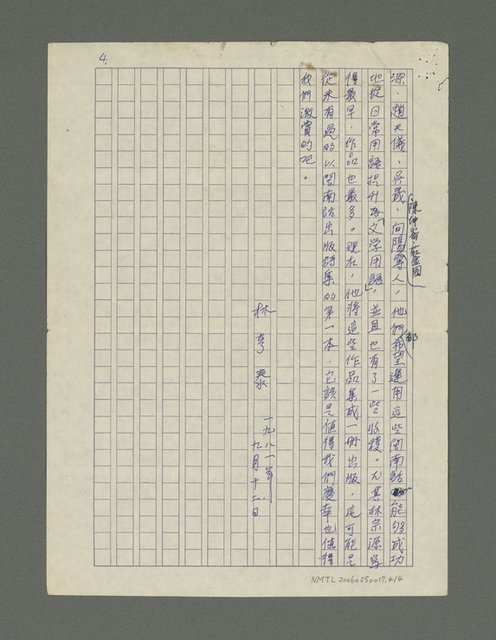 4.
源、趙天儀、吳晟、向陽等人，他們都希望運用這些閩南話能够成功
陳坤崙、莊金國
地從日常用語提升為「文学用語」，並且也有了一些收穫。尤其林宗源寫
得最早，作品也最多。現在，他將這些作品集成一冊出版，這可能是
從來有過的以閩南話出版詩集的第一本，它該是值得我們慶幸也值得
我們激賞的吧。
林亨泰
一九八一年
九月十二日
NMTL20060250017.4/4